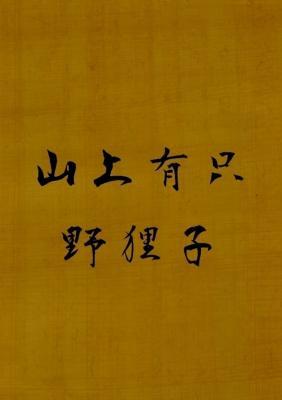 山上有只
野狸子